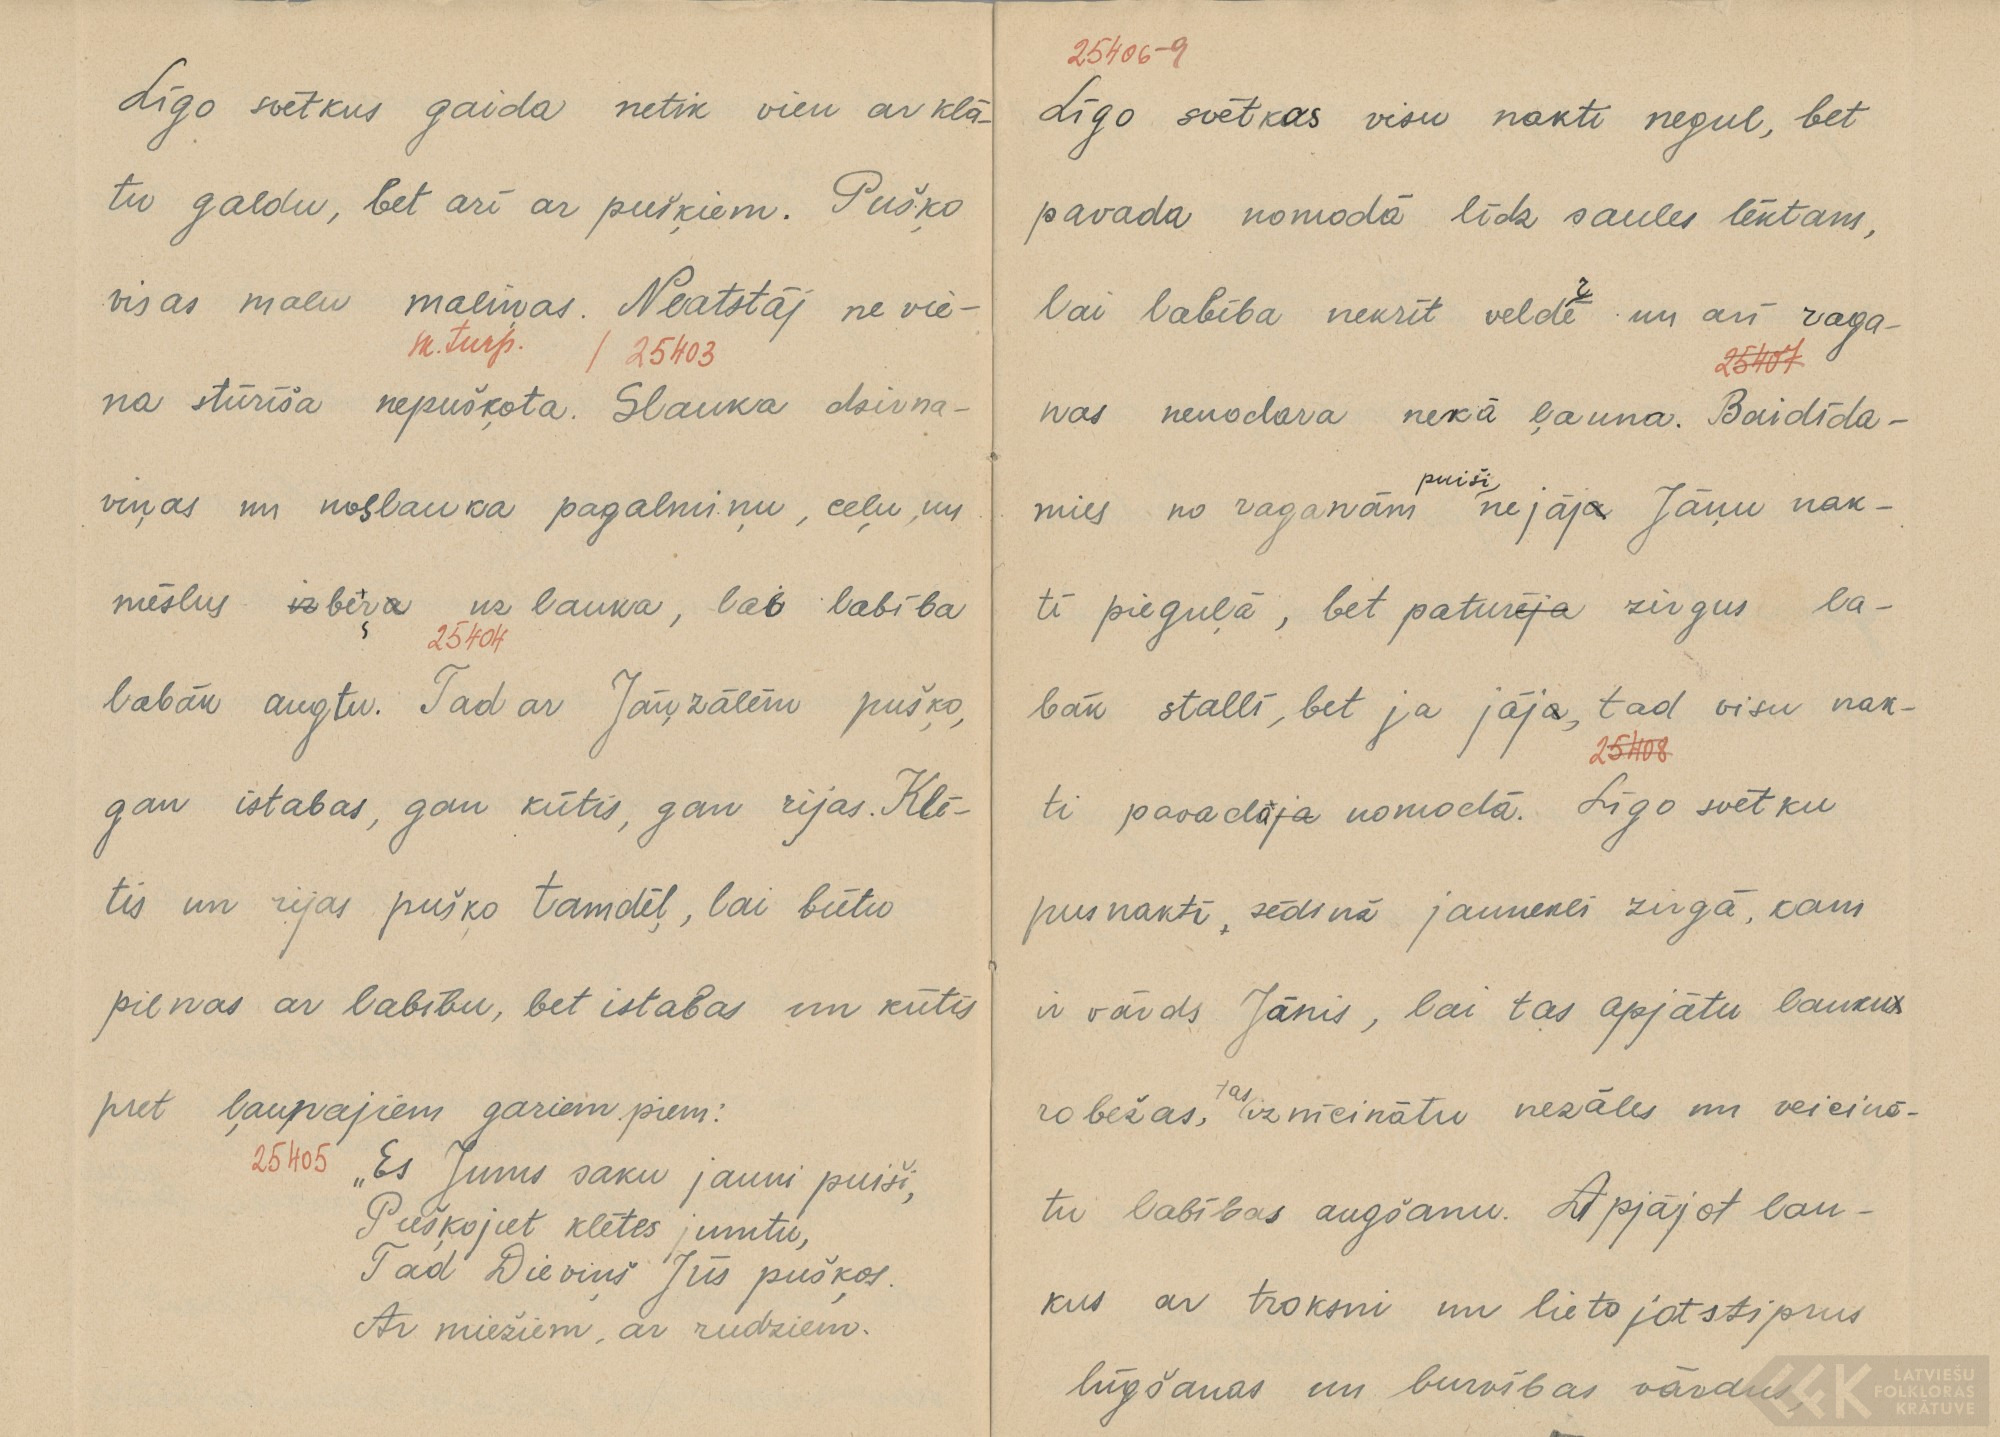 Līgo svētkus gaida netik vien ar klā-
tu galdu, bet arī ar puškiem. Puško
visas malu maliņas. Neatstāj ne vie-
m. turp. / 25403
na stūrīša nepuškota. Slauka dzirna-
viņas un noslauka pagalmiņu, ceļu, un
mēslus izbeŗa uz lauka, lai labība
25404
labāk augtu. Tad ar Jāņzālēm puško,
gan istabas, gan kūtis, gan rijas. Klē-
tis un rijas puško tamdēļ, lai būtu
pilnas ar labību, bet istabas un kūtis
pret ļaunajiem gariem. piem:
25405 „Es Jums saku jauni puiši,
Puškojiet klētes jumtu,
Tad Dieviņš Jūs puškos.
Ar miežiem, ar rudziem.
25406-9
Līgo svētkos visu nakti neguļ, bet
pavada nomodā līdz saules lēktam,
lai labība nekrīt veldrē un arī raga-
25407
nas nenodara nekā ļauna. Baidīda-
mies no raganām puiši nejāja Jāņu nak-
tī pieguļā, bet paturēja zirgus la-
bāk stallī, bet ja jāja, tad visu nak-
25408
ti pavadīja nomodā. Līgo svētku
pusnaktī, sēdina jaunekli zirgā, kam
ir vārds Jānis, lai tas apjātu laukus
robežas, tas iznīcinātu nezāles un veicinā-
tu labības augšanu. Apjājot lau-
kus ar troksni un lietojot stiprus
lūgšanas un burvības vārdus,
LATVIEŠU
FOLKLORAS
KRĀTUVE